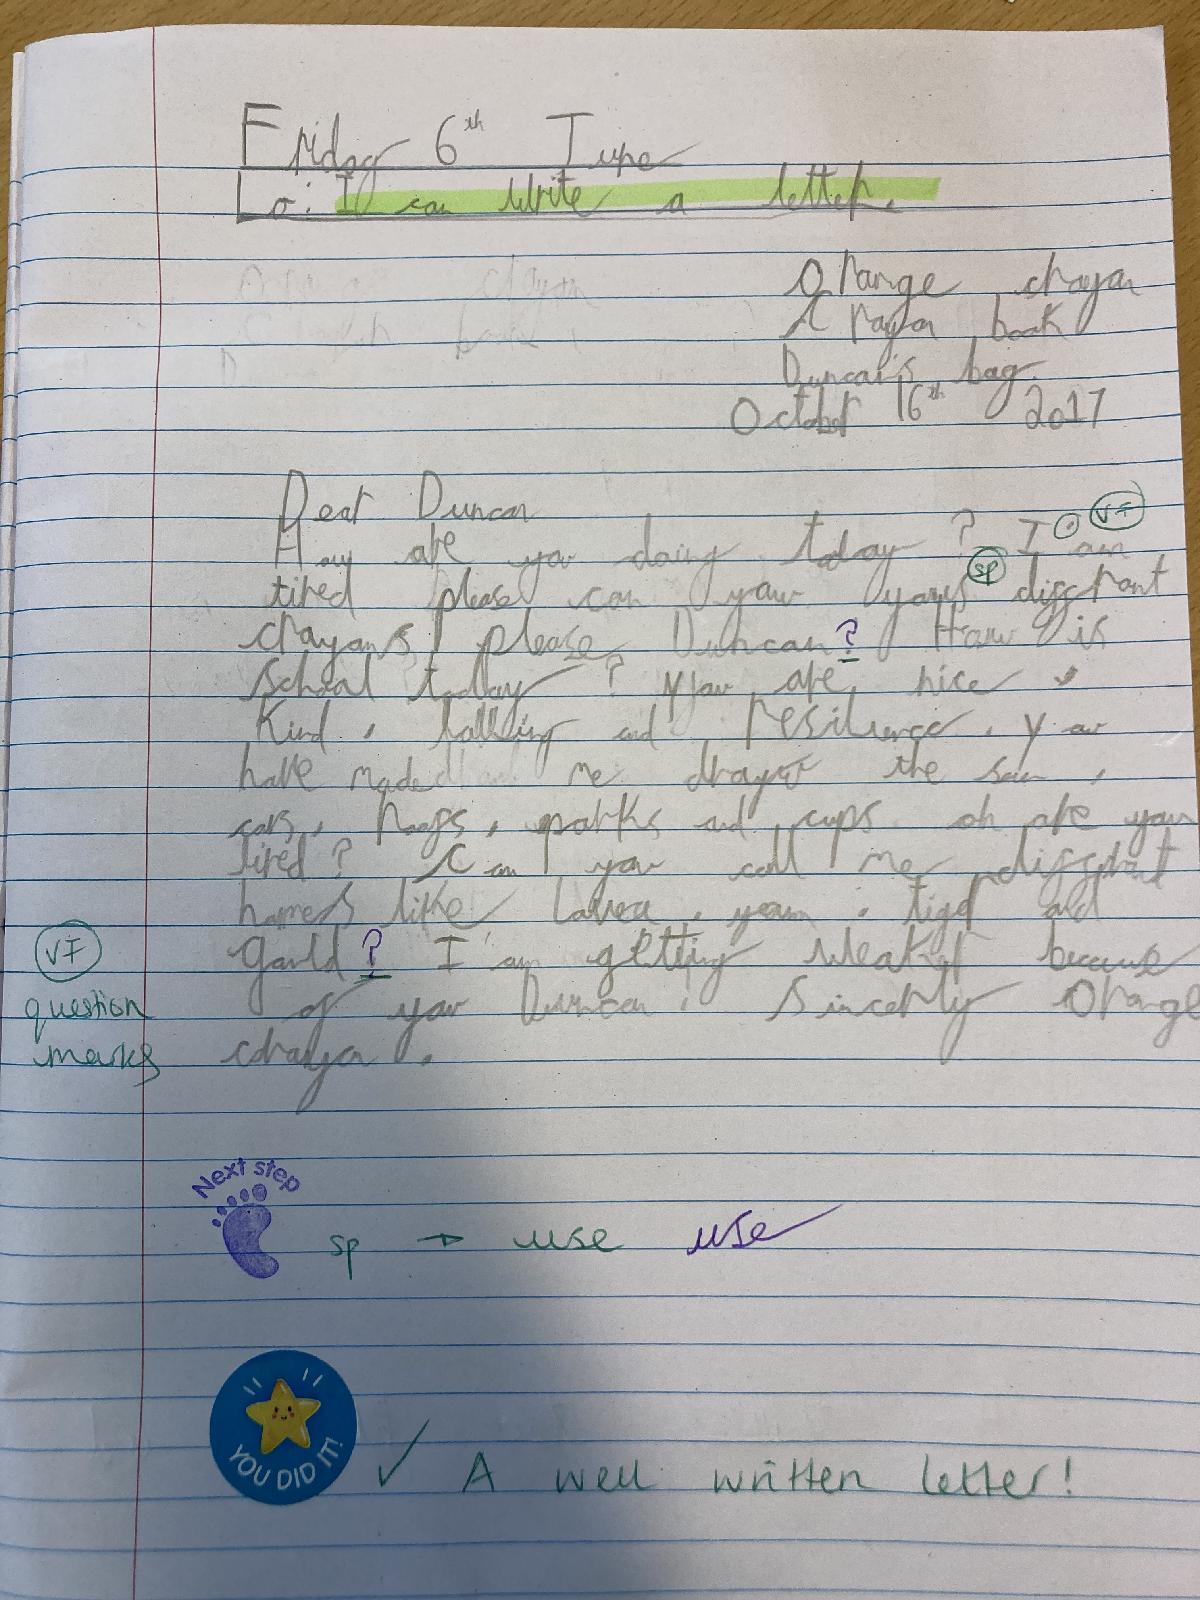 Friday 6th June
Lo: I can write a letter.
Orange crayon
Crayon book
Duncan's bag
October 16th 2017
Dear Duncan
How are you doing today? I am
VF
tired please can you yous diffrant
sp
crayons please Duncan? How is
school today? you are nice,
kind, and resilience. you
have made me the sun,
cars, parks and cups. oh are you
tired? Can you call me diffrant
names like
VF
? I am getting weaker because
question
of you Duncan. Sincerly Orange
marks
crayon.
Next step
sp → use use
YOU DID IT!
✓ A well written letter!